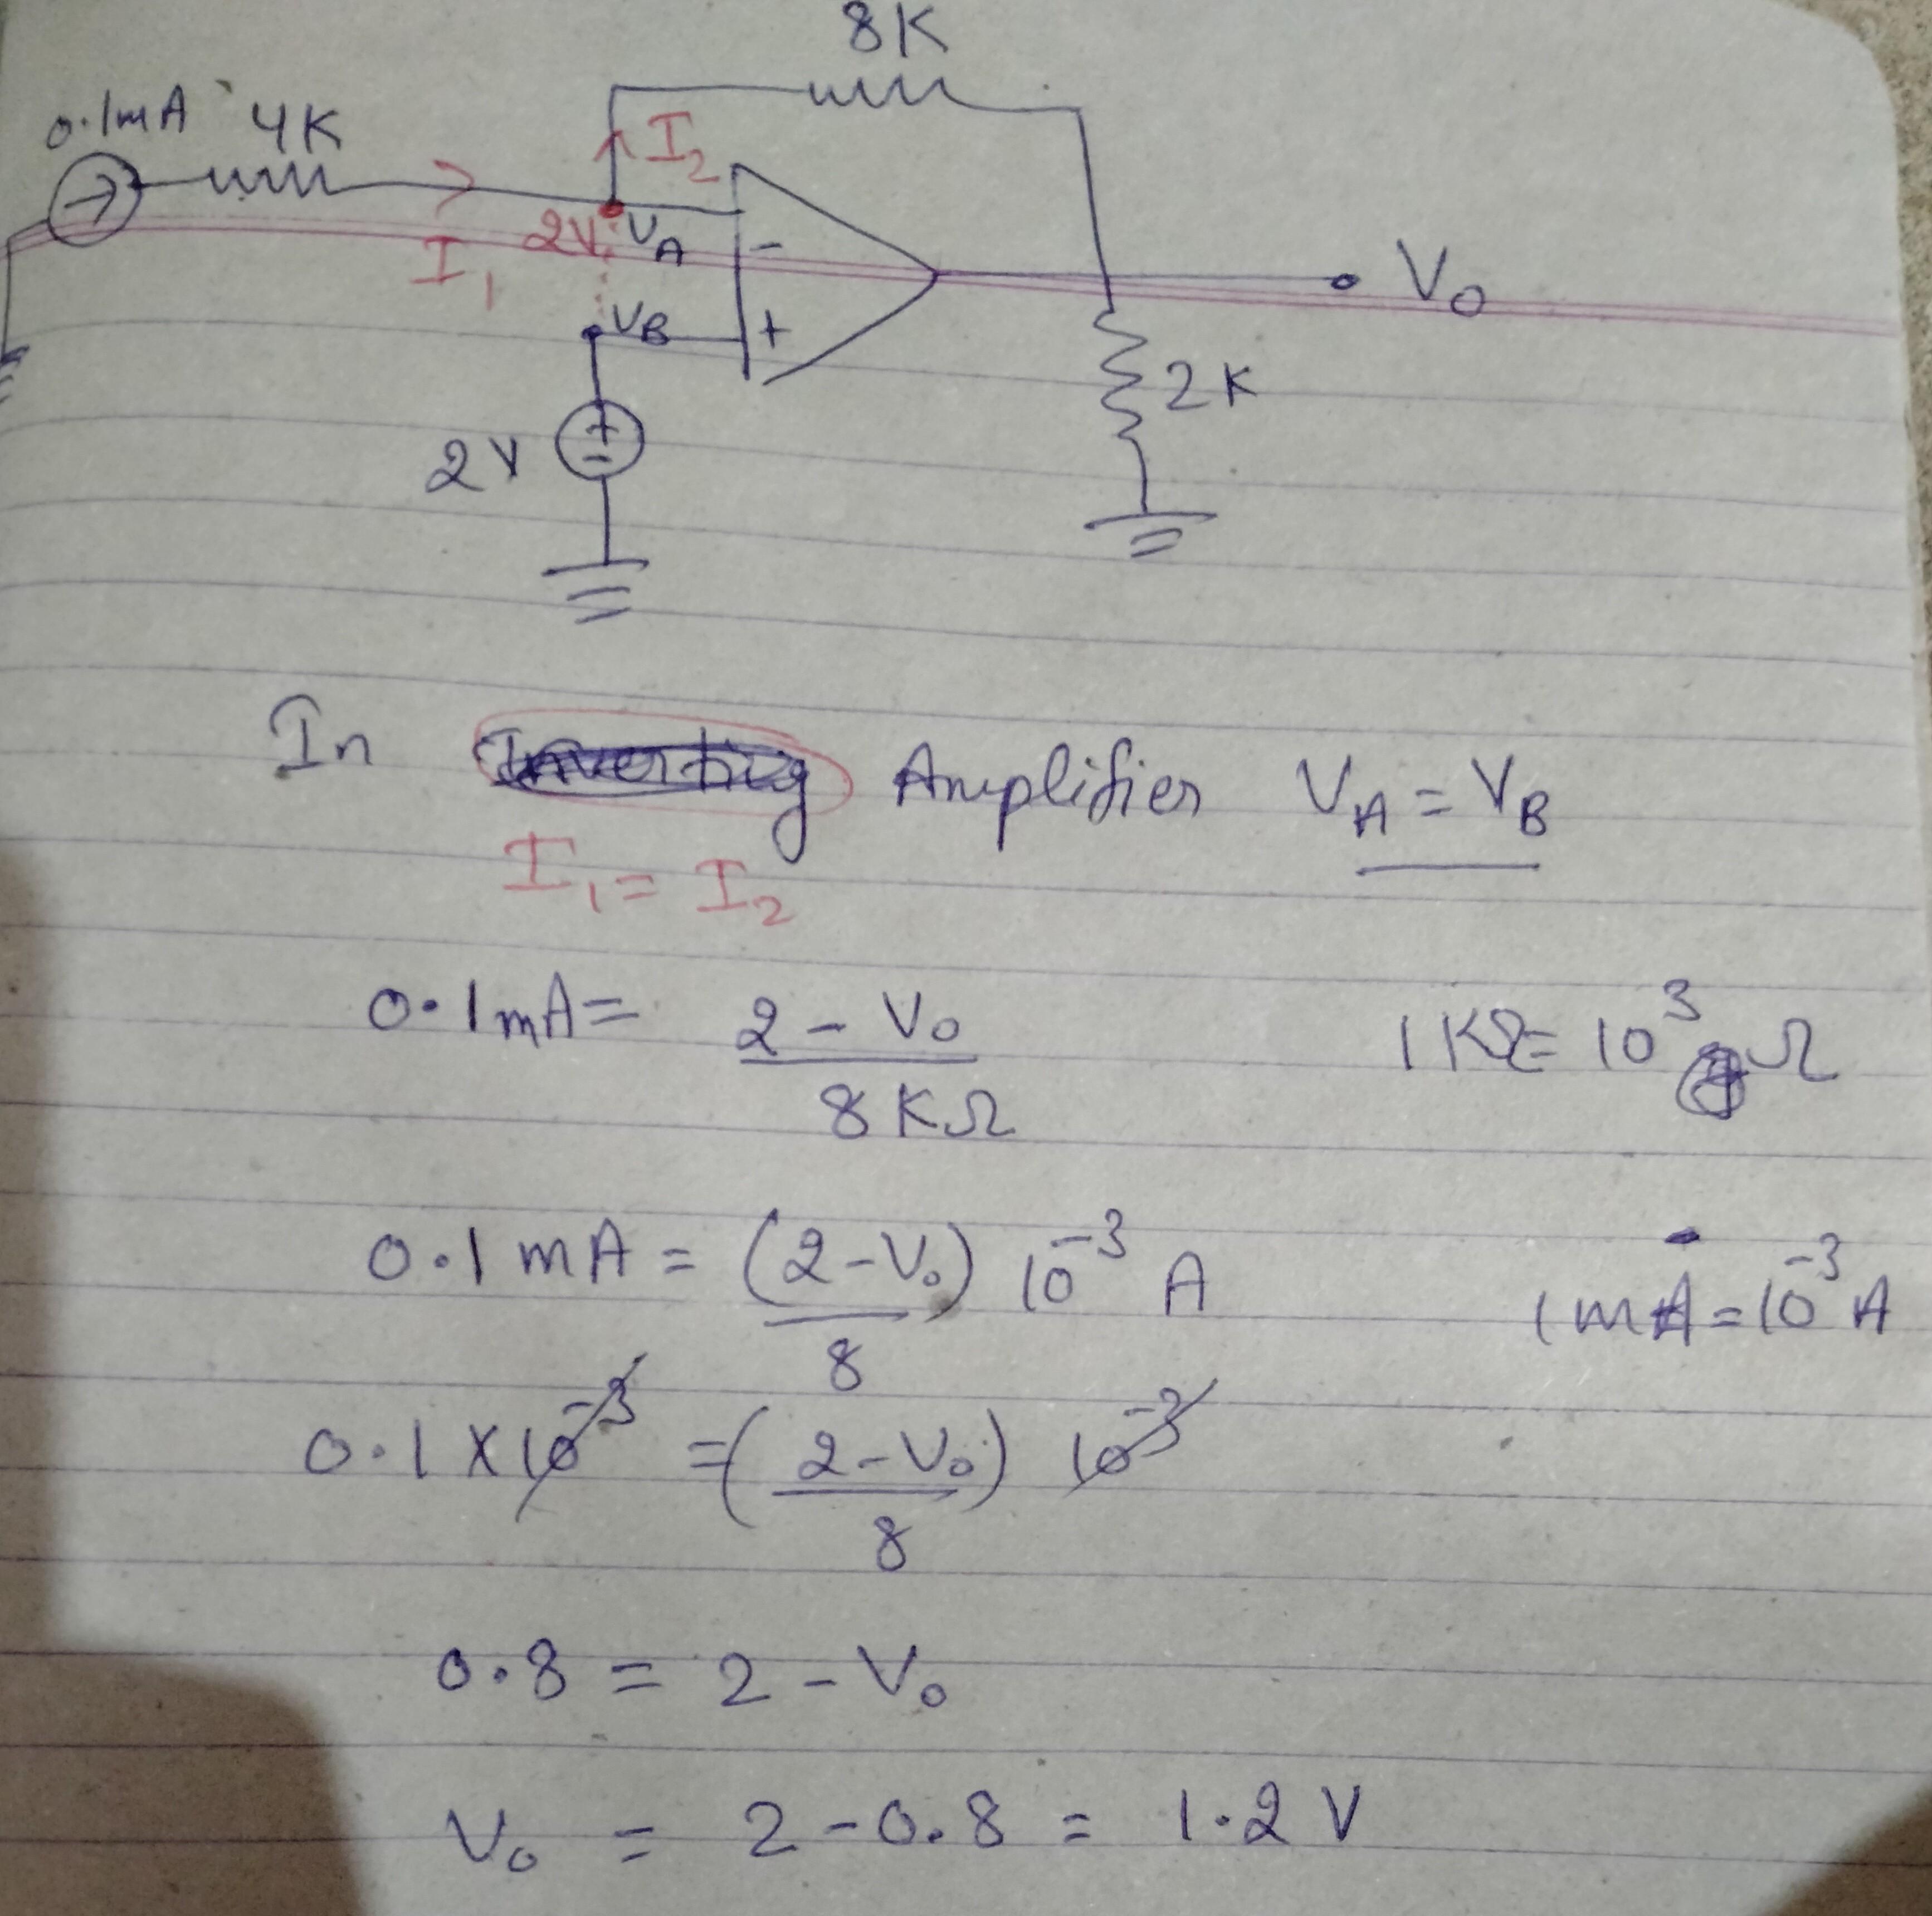 8K
0.1mA 4K
I₂
2V VA
-
I₁
Vo
VB
+
2K
2V
+
-
In Inverting Amplifier VA = VB
I₁ = I₂
0.1mA = 2 - Vo / 8KΩ
1KΩ = 10³ Ω
0.1 mA = (2-Vo)/8 10⁻³ A
1mA = 10⁻³ A
0.1 X 10⁻³ = (2-Vo/8) 10⁻³
0.8 = 2 - Vo
Vo = 2 - 0.8 = 1.2 V